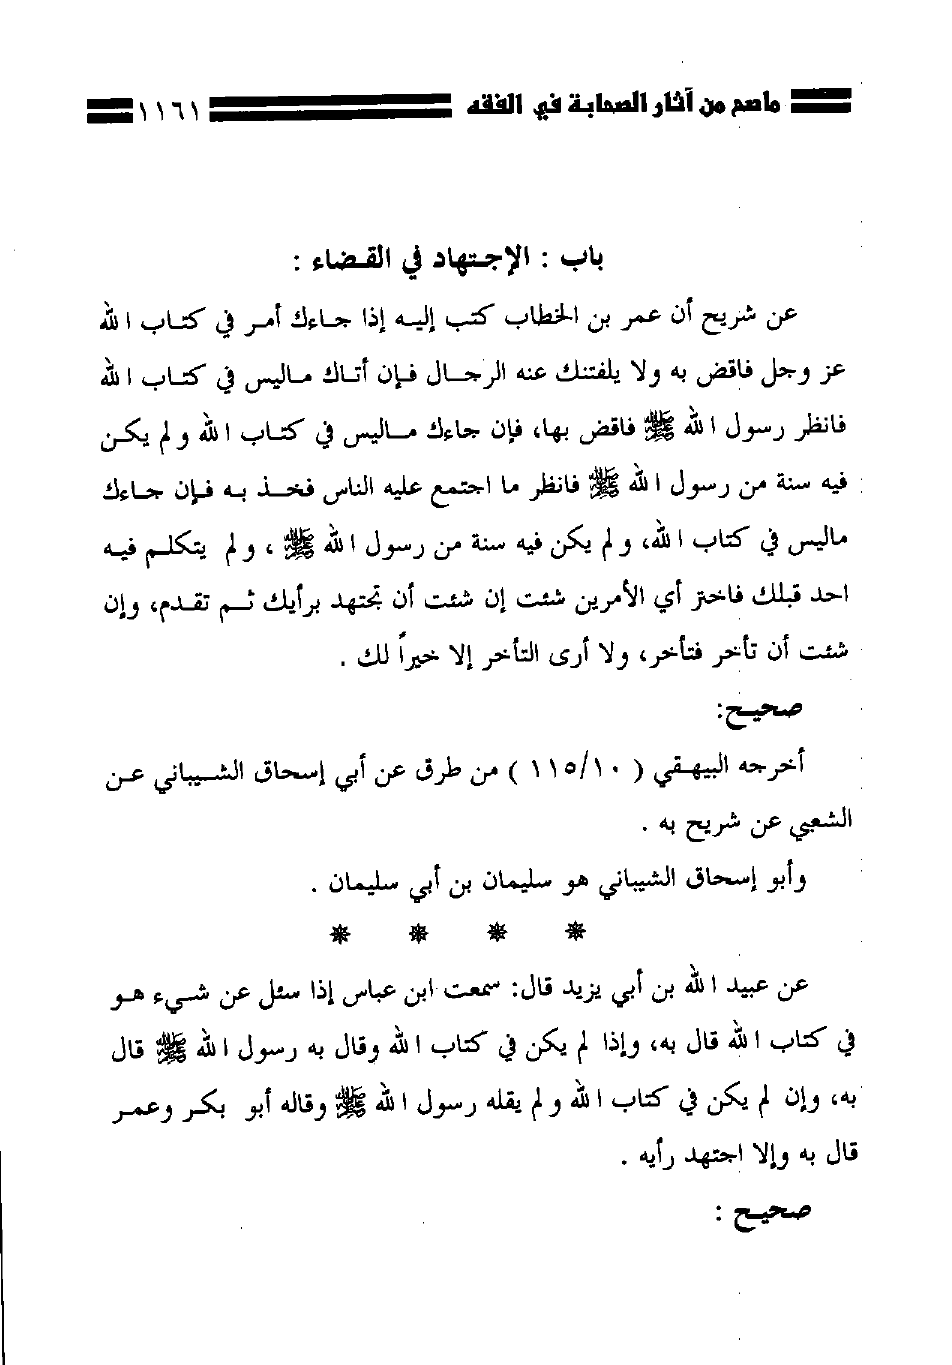 ماصح من آثار الصحابة في الفقه ١١٦١
باب : الإجتهاد في القضاء :
عن شريح أن عمر بن الخطاب كتب إليه إذا جاءك أمر في كتاب الله
عز وجل فاقض به ولا يلفتنك عنه الرجال فإن أتاك ماليس في كتاب الله
فانظر رسول الله ﷺ فاقض بها، فإن جاءك ماليس في كتاب الله ولم يكن
فيه سنة من رسول الله ﷺ فانظر ما اجتمع عليه الناس فخذ به فإن جاءك
ماليس في كتاب الله، ولم يكن فيه سنة من رسول الله ﷺ ، ولم يتكلم فيه
احد قبلك فاختر أي الأمرين شئت إن شئت أن تجتهد برأيك ثم تقدم، وإن
شئت أن تأخر فتأخر، ولا أرى التأخر إلا خيراً لك .
صحيح:
أخرجه البيهقي ( ١١٥/١٠ ) من طرق عن أبي إسحاق الشيباني عن
الشعبي عن شريح به .
وأبو إسحاق الشيباني هو سليمان بن أبي سليمان .
عن عبيد الله بن أبي يزيد قال: سمعت ابن عباس إذا سئل عن شيء هو
في كتاب الله قال به، وإذا لم يكن في كتاب الله وقال به رسول الله ﷺ قال
به، وإن لم يكن في كتاب الله ولم يقله رسول الله ﷺ وقاله أبو بكر وعمر
قال به وإلا اجتهد رأيه .
صحيح :